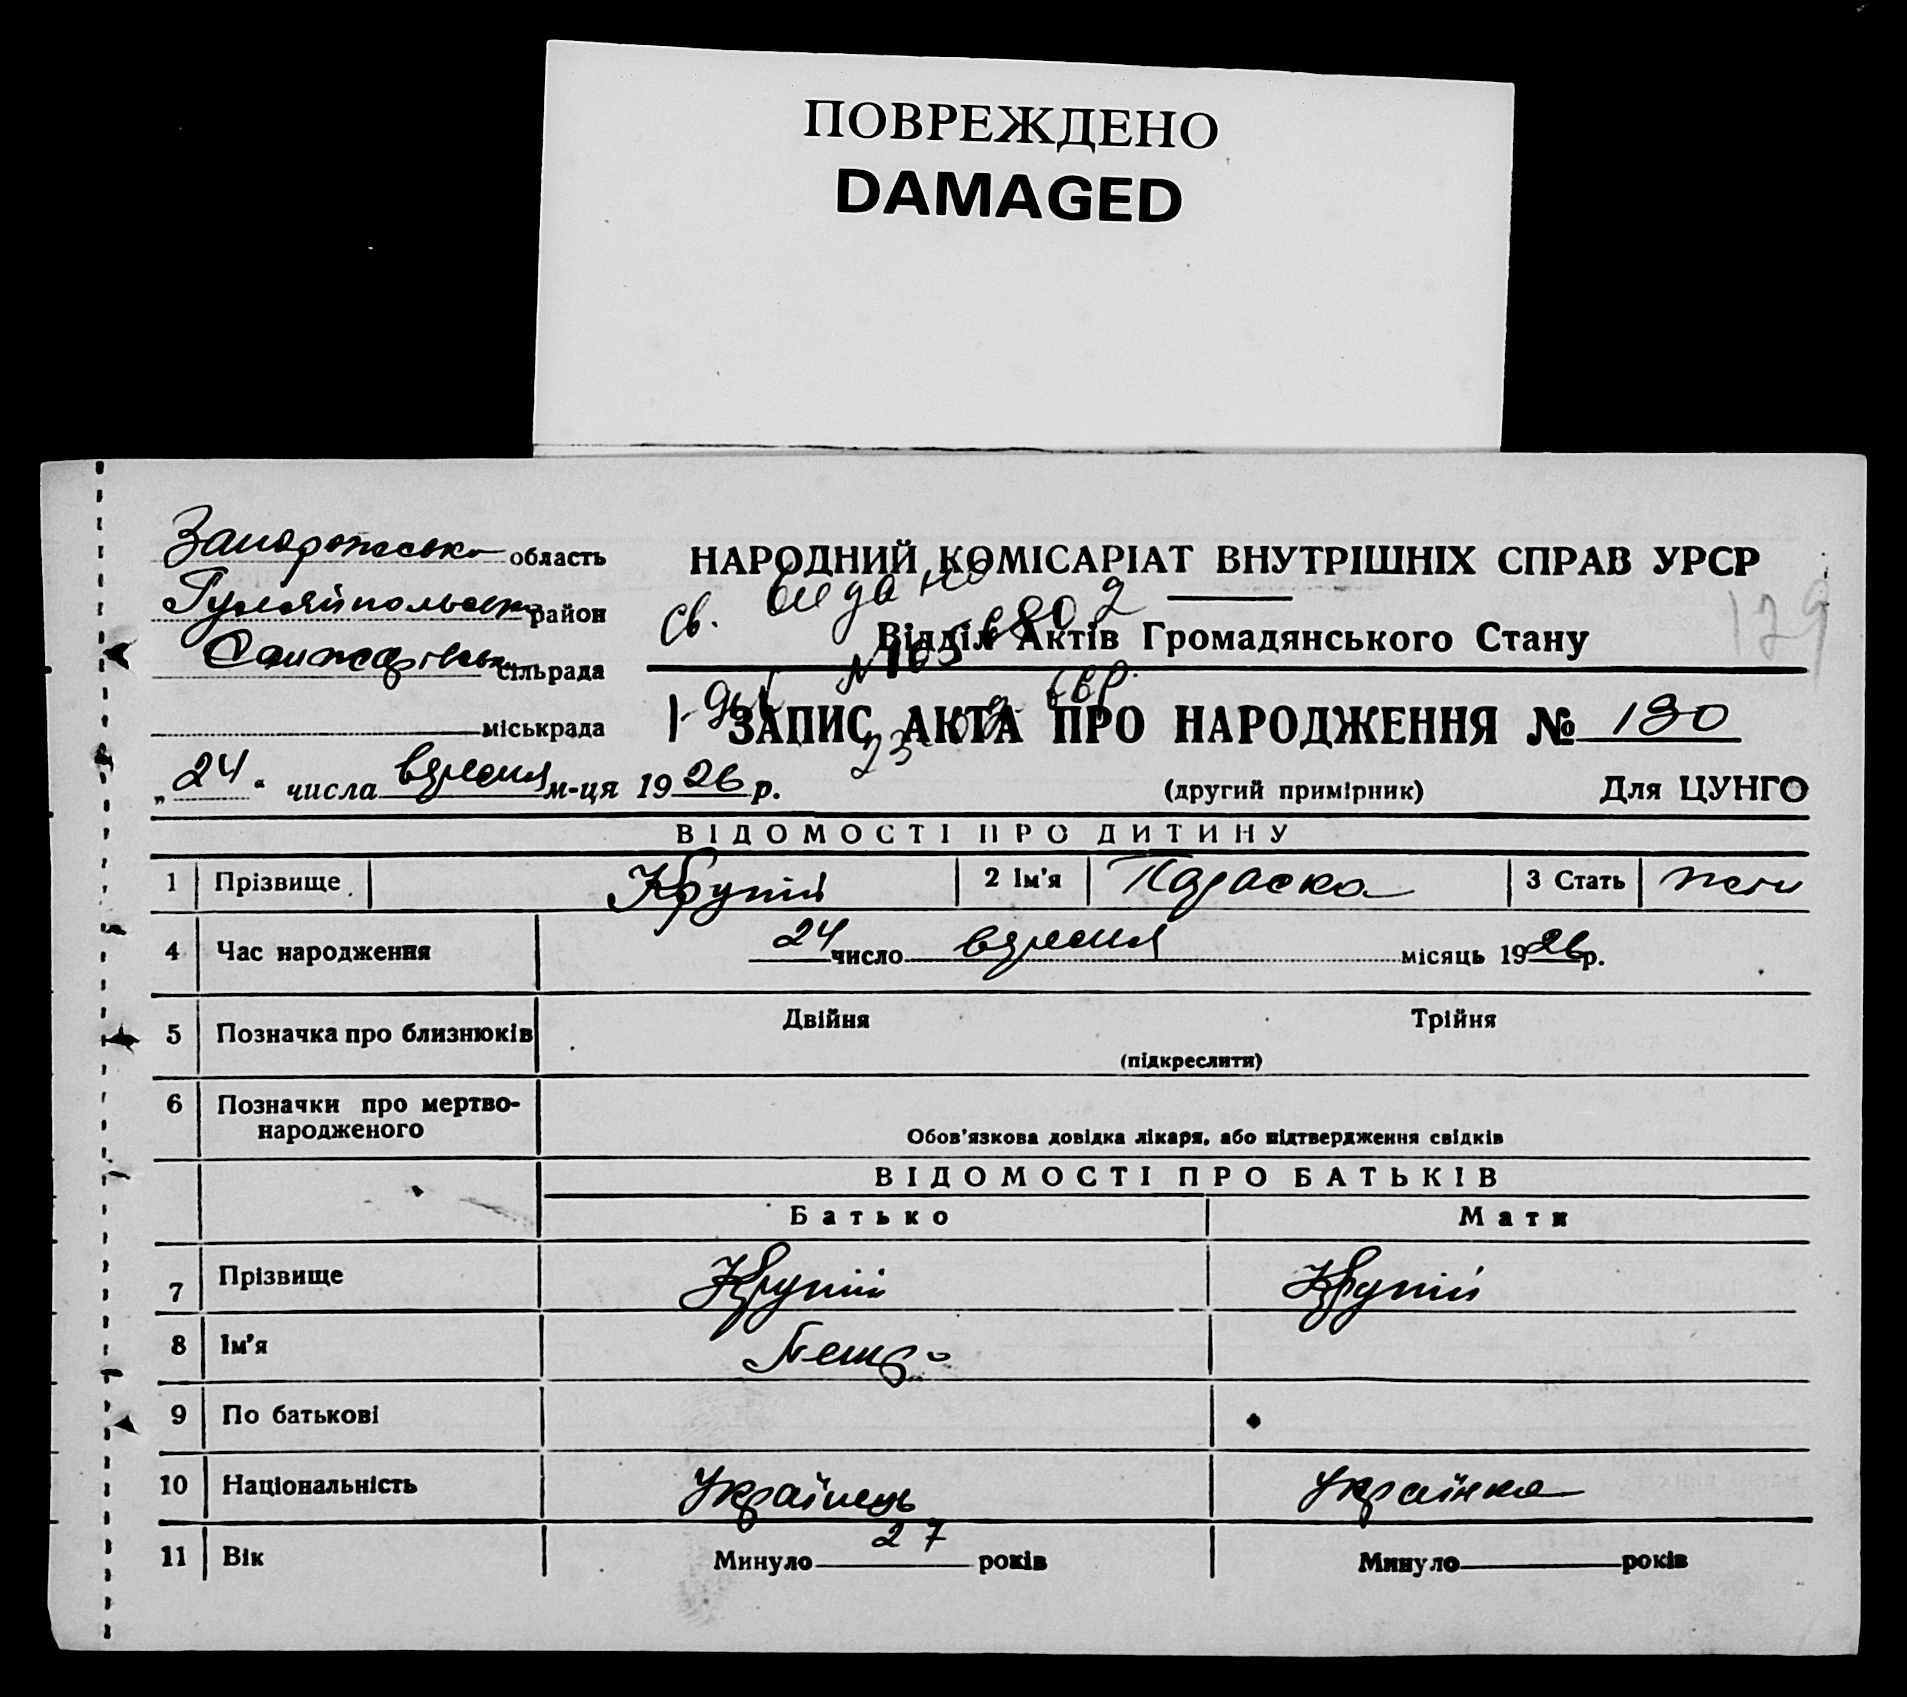 ПОВРЕЖДЕНО
DAMAGED
Запорожська область
Гуляйпольськ район
Санжарівськ сільрада
міськрада
НАРОДНИЙ КОМІСАРІАТ ВНУТРІШНІХ СПРАВ УРСР
св. видано
Відділ Актів Громадянського Стану
179
ЗАПИС АКТА ПРО НАРОДЖЕННЯ № 130
„24“ числа вересня м-ця 1926 р.
(другий примірник) Для ЦУНГО
ВІДОМОСТІ ПРО ДИТИНУ
1 Прізвище Крупій 2 Ім'я Параска 3 Стать жен
4 Час народження 24 число вересня місяць 1926р.
5 Позначка про близнюків Двійня Трійня
(підкреслити)
6 Позначки про мертво-
народженого
Обов'язкова довідка лікаря, або підтвердження свідків
ВІДОМОСТІ ПРО БАТЬКІВ
Батько Мати
7 Прізвище Крупій Крупій
8 Ім'я Петро
9 По батькові
10 Національність Українець Українка
11 Вік Минуло 27 років Минуло років